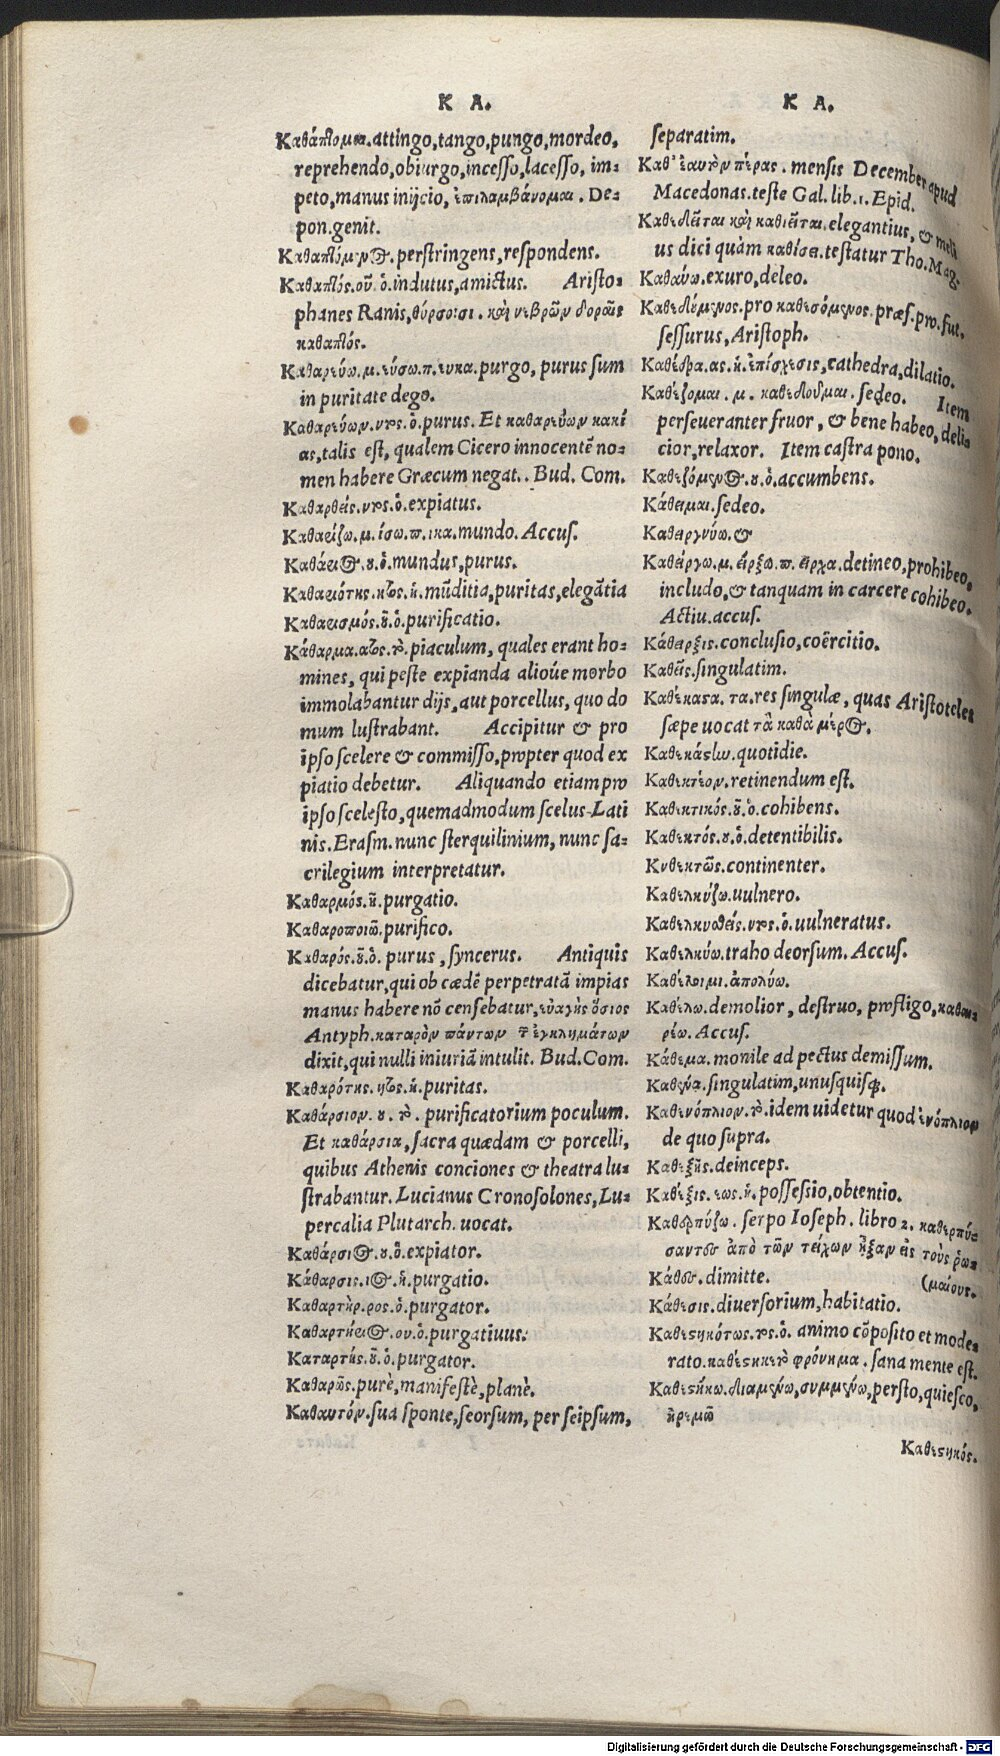 Κ Α.
Καθάπτομαι.attingo,tango,pungo,mordeo,
reprehendo,obiurgo,incesso,lacesso, im-
peto,manus inijcio, ἐπιλαμβάνομαι. De-
pon.genit.
Καθαπτόμενος. perstringens,respondens.
Καθαπτός.οῦ.ὁ.indutus,amictus. Aristo-
phanes Ranis,θύρσοισι. καὶ νεβρῶν δοραῖς
καθαπτός.
Καθαρεύω.μ.εύσω.π.ευκα.purgo, purus sum
in puritate dego.
Καθαρεύων.ντος.ὁ.purus. Et καθαρεύων κακί
ας,talis est, qualem Cicero innocentē no-
men habere Græcum negat.. Bud. Com.
Καθαρθείς.ντος.ὁ.expiatus.
Καθαρίζω.μ.ίσω.π.ικα.mundo. Accus.
Καθάριος.ου.ὁ.mundus,purus.
Καθαριότης.ητος.ἡ.mūditia,puritas,elegātia
Καθαρισμός.οῦ.ὁ.purificatio.
Κάθαρμα.ατος.τὸ.piaculum, quales erant ho-
mines, qui peste expianda alioúe morbo
immolabantur dijs,aut porcellus, quo do
mum lustrabant. Accipitur & pro
ipso scelere & commisso,propter quod ex
piatio debetur. Aliquando etiam pro
ipso scelesto,quemadmodum scelus Lati
nis. Erasm. nunc sterquilinium, nunc sa-
crilegium interpretatur.
Καθαρμός.ἡ.purgatio.
Καθαροποιῶ.purifico.
Καθαρός.οῦ.ὁ. purus, syncerus. Antiquis
dicebatur,qui ob cædē perpetratā impias
manus habere nō censebatur,εὐαγὴς ὅσιος
Antyph.καταρὸν πάντων τῶν ἐγκλημάτων
dixit,qui nulli iniuriā intulit. Bud.Com.
Καθαρότης.ητος.ἡ.puritas.
Καθάρσιον. ου. τὸ. purificatorium poculum.
Et καθάρσια, sacra quædam & porcelli,
quibus Athenis conciones & theatra lu-
strabantur. Lucianus Cronosolones, Lu-
percalia Plutarch. uocat.
Καθάρσιος.ου.ὁ.expiator.
Κάθαρσις.ιος.ἡ.purgatio.
Καθαρτὴρ.ρος.ὁ.purgator.
Καθαρτήριος.ου.ὁ.purgatiuus.
Καταρτής.οῦ.ὁ.purgator.
Καθαρῶς.purè,manifestè,planè.
Καθαυτόν.sua sponte,seorsum, per seipsum,
Κ Α.
separatim.
Καθ' ἑαυτὸν πέρας. mensis December apud
Macedonas.teste Gal.lib.1. Epid.
Καθεδεῖται καὶ καθιεῖται.elegantius, & meli
us dici quàm καθίσει.testatur Tho.Mag.
Καθαύω.exuro,deleo.
Καθεδύμενος.pro καθεσόμενος.præs.pro.fut.
sessurus, Aristoph.
Καθέδρα.ας.ἡ.ἐπίσχεσις,cathedra,dilatio.
Καθέζομαι. μ. καθεδοῦμαι. sedeo. Item
perseueranter fruor, & bene habeo, deli-
cior,relaxor. Item castra pono.
Καθεζόμενος.ου.ὁ.accumbens.
Κάθειμαι.sedeo.
Καθειργνύω.&
Καθείργω.μ. είρξω.π. είρχα.detineo,prohibeo,
includo,& tanquam in carcere cohibeo.
Actiu.accus.
Κάθειρξις.conclusio,coërcitio.
Καθεῖς.singulatim.
Καθέκαστα. τα.res singulæ, quas Aristoteles
sæpe uocat τὰ καθὰ μέρος.
Καθεκάστην.quotidie.
Καθεκτέον.retinendum est.
Καθεκτικός.οῦ.ὁ.cohibens.
Καθεκτός.οῦ.ὁ.detentibilis.
Κυθεκτῶς.continenter.
Καθελκύζω.uulnero.
Καθελκυσθείς.ντος.ὁ.uulneratus.
Καθελκύω.traho deorsum. Accus.
Καθέλοιμι.ἀπολύω.
Καθέλω.demolior, destruo, profligo,καθαι-
ρέω. Accus.
Κάθεμα. monile ad pectus demissum.
Καθένα.singulatim,unusquisq́.
Καθενόπλιον.τὸ.idem uidetur quod ἐνόπλιον
de quo supra.
Καθεξῆς.deinceps.
Καθέξις. εως.ἡ.possessio,obtentio.
Καθερπύζω. serpo Ioseph. libro 2. καθερπύ-
σαντες ἀπὸ τῶν τείχων ἧξαν εἰς τοὺς ῥω-
(μαίους.
Κάθες. dimitte.
Κάθεσις.diuersorium,habitatio.
Καθεστηκότως.τος.ὁ. animo cōposito et mode-
rato.καθεστηκειτὸ φρόνημα. sana mente est.
Καθεστήκω.διαμένω,συμμένω,persto,quiesco,
ἠρεμῶ
Καθεστηκός.
Digitalisierung gefördert durch die Deutsche Forschungsgemeinschaft - DFG